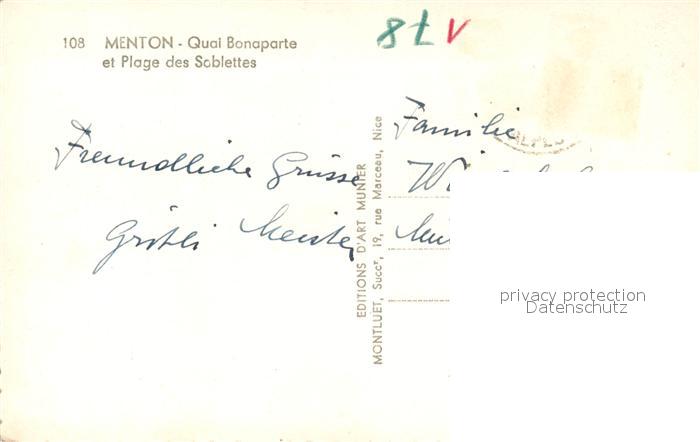 108 MENTON - Quai Bonaparte
et Plage des Sablettes
8tv
Freundliche Grüsse
Meister
EDITIONS D'ART MUNIER
MONTLUET, Succr, 19, rue Marceau, Nice
Familie
ALPES
privacy protection
Datenschutz